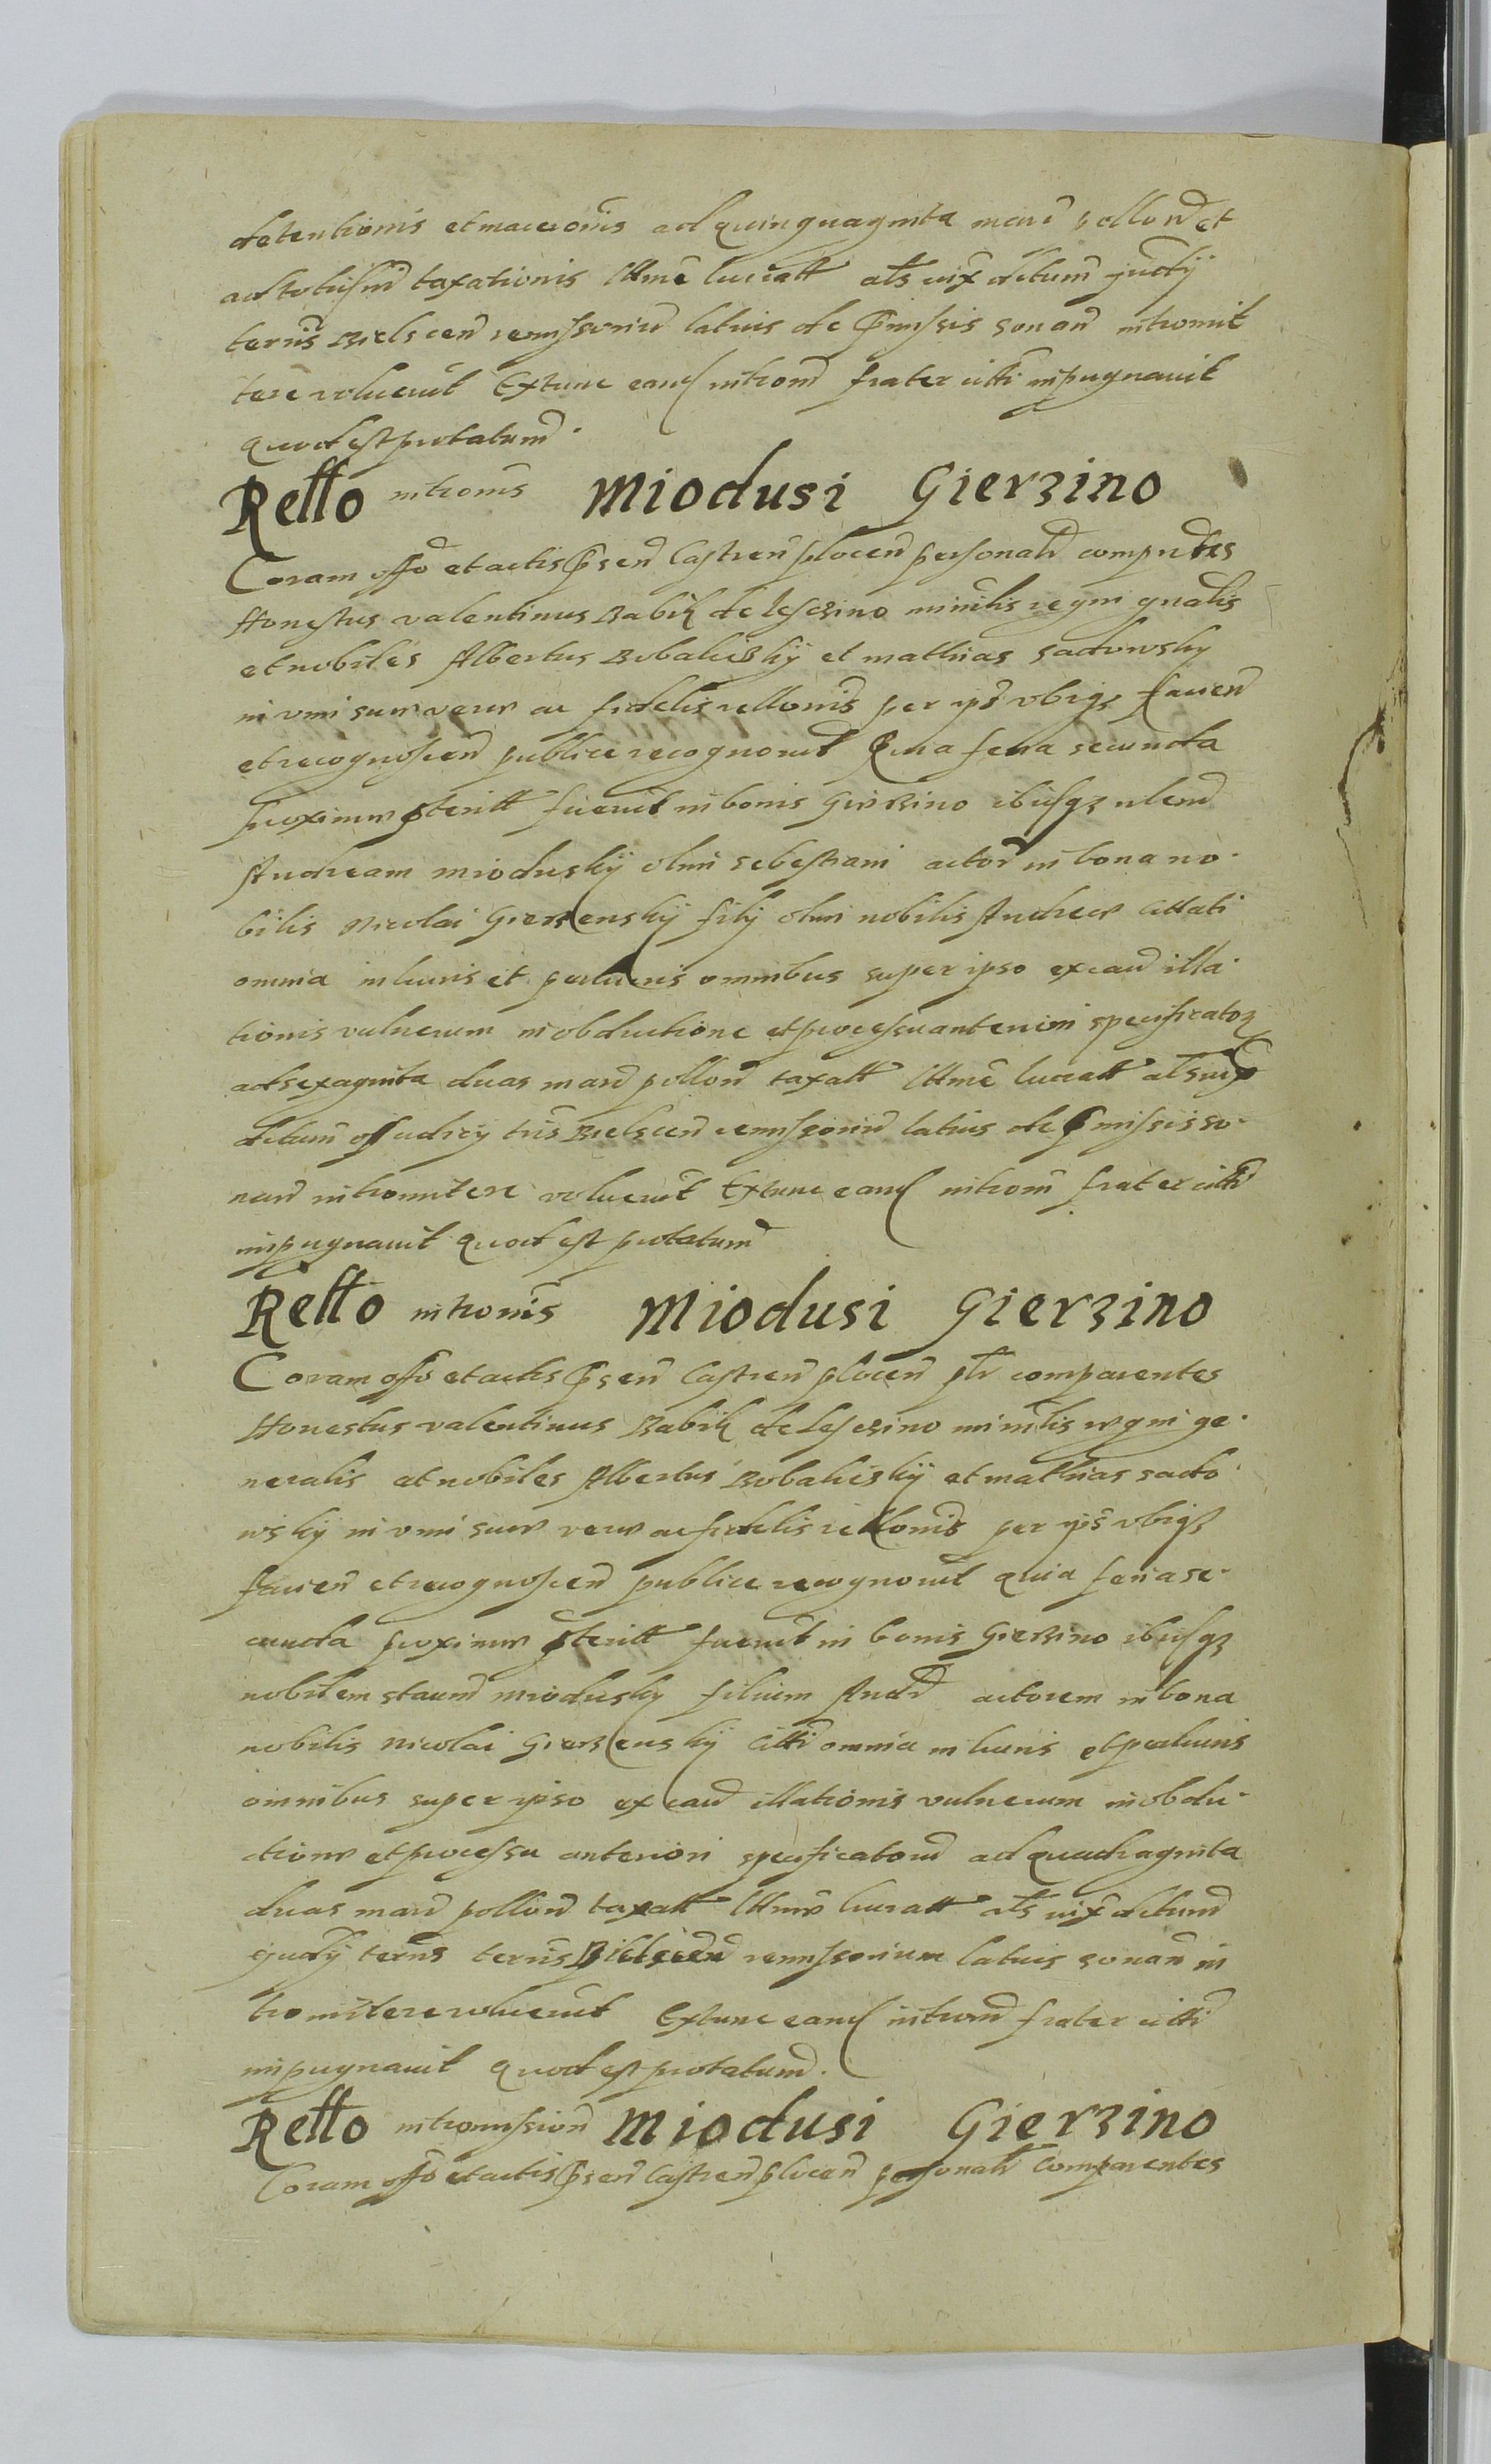 detentionis et macerõnis ad quinquaginta marc pollon et
ad totusm̃ taxationis Ittm̃e lucratt als vix dctum judÿ
terris Bielscen̄ remissoriu latius de p̄missis sonan̄ intromit
tere voluerut Extunc eand introm̃ frater citti inpugnavit
quod est protatum.
Rello introm̃s Miodusi Gierzino
Coram offo et actis p̄sen̄ Castren̄ plocen̄ personalr comprntes
Honestus valentinus Babik de lesczino minrlis regni gnalis
et nobiles Albertus Bobaliczkÿ et mathias sadowsky
in vim suae verae ac fidelis rellonis per ips vbiqz facien̄
et recognoscen̄ publice recognorut Quia feria secunda
proximae p̄teritt fuerut in bonis Gierzino ibusqz nlem̄
Andream Mioduskÿ olim sebestiani actor in bona no.
bilis Nicolai Gierzenskÿ filÿ olim nobilis Andreae cittati
omnia in lucris et perlucris omnibus super ipso ex cau illa.
tionis vulnerum in obductione et processu anteriori specificatoz
ad sexaginta duas marc pollon taxatt Ittm̃e lucratt als vix
dctum judicÿ tris Bielscen̄ remissoriu latius de p̄missis so.
nan̄ intromitere voluerut Extunc eand introm̃ frater citti
inpugnavit quod est protatum
Rello introm̃s Miodusi Gierzino
Coram offo et actis p̄sen̄ Castren̄ plocen̄ plr comparentes
Honestus valentinus Babik de Lesczino minrlis regni ge.
neralis et nobiles Albertus Bobaliczkÿ et mathias sado
wskÿ in vim suae verae ac fidelis rellonis per ips vbiqz
facien̄ et recognoscen̄ publice recognorut quia feria se.
cunda proximae p̄teritt fuerut in bonis Gierzino ibusqz
nobilem stanm̄ Miodusky filium Andr actorem in bona
nobilis Nicolai Gierzenskÿ citti omnia in lucris et perlucris
omnibus super ipso ex cau illationis vulnerum in obdu.
ctione et processu anteriori specificatorum ad quadraginta
duas marc pollon taxatt Ittmae lucratt als vix dctum
judÿ terris terris Bielscen̄ remissorium latius sonan̄ in
tromitere voluerut Extunc eand introm̃ frater citti
inpugnavit quod est protatum.
Rello intromission̄ Miodusi Gierzino
Coram offo et actis p̄sen̄ Castren̄ plocen̄ personalr Comparentes